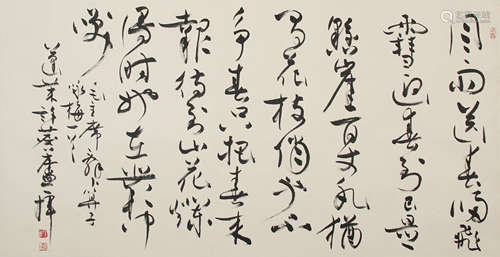 风雨送春归飛
雪迎春到已是
懸崖百丈冰猶
有花枝俏俏不
争春只把春来
報待到山花爛
漫時她在叢中
笑
毛主席辞卜算子
咏梅一首
蓬莱許蔡廬書